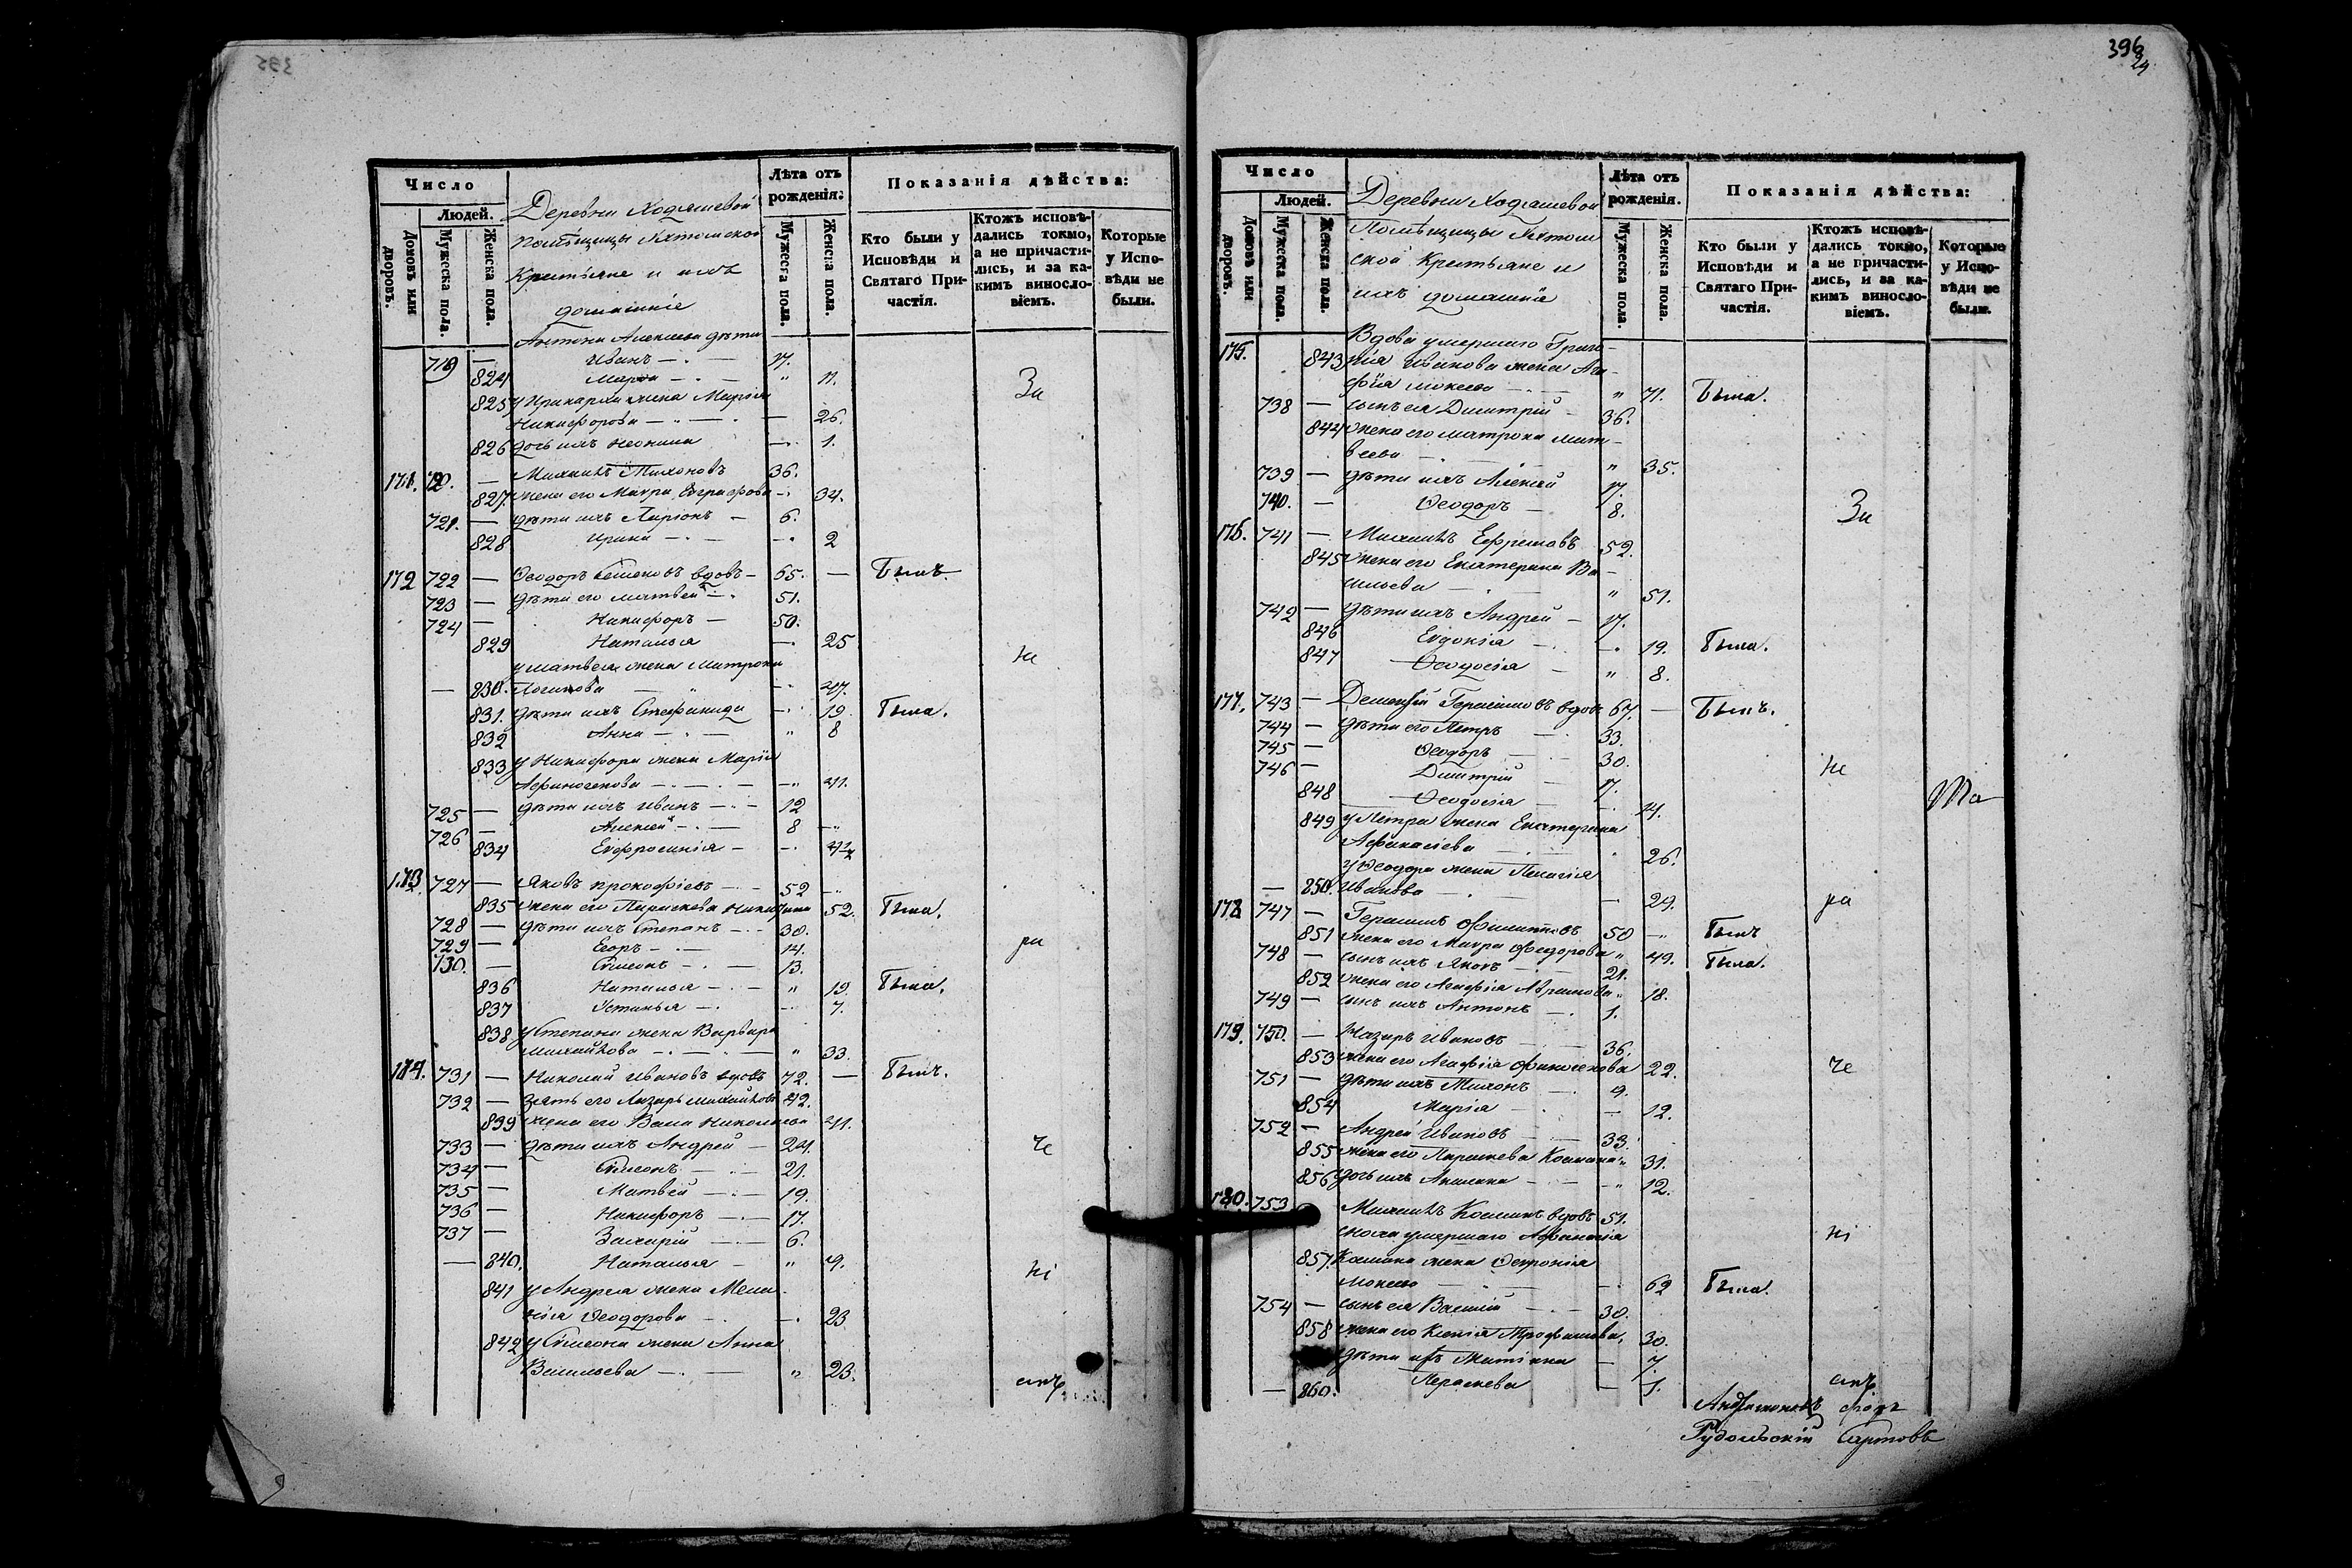 395
Число
Людей.
Домовъ или дворовъ.
Мужеска пола.
Женска пола.
Деревни Ходяшевой
помѣщицы
Крестьяне и ихъ
домашніе
Лѣта отъ рожденія:
Мужеска пола.
Женска пола.
Показанія дѣйства:
Кто были у Исповѣди и Святаго Причастія.
Ктожъ исповѣдались токмо, а не причастились, и за какимъ винословіемъ.
Которые у Исповѣди не были.
Антона Алексѣева дѣти
719 — Иванъ — 17.
824 Марѳа — " 11.
За
825 жена Марія
Никифорова — 26.
826 дочь ихъ Неонила — 1.
171. 720. — Михаилъ Тихоновъ 36.
827. жена его Мавра Евграфова — 34.
721. — дѣти ихъ Ларіонъ — 6.
828 Ирина — 2
172 722 — Ѳеодоръ Семеновъ вдовъ — 65. — Былъ.
723 — дѣти его Матвей — 51.
724 — Никифоръ — 50.
829 Наталья — 25
не
у Матвея жена Матрона
— 830. Логинова — 47.
831. дѣти ихъ Стефанида — 19. Была.
832 Анна — " 8
833 у Никифора жена Марія
Афиногенова — 41.
725 — дѣти ихъ Иванъ — 12
726 — Алексей — 8
834 Евфросинія —
173. 727 — Яковъ Прокофіевъ — 52
835 жена его Параскева 52. Была.
728 — дѣти ихъ Степанъ — 30.
729 — Егоръ — 14.
ра
730. — Симеонъ — 13.
836 Наталья — " 19. Была.
837 Устинья — 7.
838 у Степана жена Варвара
Михайлова — " 33.
174. 731 — Николай Ивановъ вдовъ 72. — Былъ.
732 — зять его Лазарь Михайловъ 42.
839 жена его Николаева 41.
733 — дѣти ихъ Андрей — 24.
че
734 — Симеонъ — 21.
735 — Матвей — 19.
736 — Никифоръ — 17.
737 — Захарій — 6.
— 840. Наталья — " 9.
ні
841 у Андрея жена Мела
нія Ѳеодорова — 23
842 у Симеона жена Анна
Васильева — " 23.
емъ
396
24
Число
Людей.
Домовъ или дворовъ.
Мужеска пола.
Женска пола.
Деревни Ходяшевой
Помѣщицы
ской Крестьяне и
ихъ домашніе
Лѣта отъ рожденія.
Мужеска пола.
Женска пола.
Показанія дѣйства:
Кто были у Исповѣди и Святаго Причастія.
Ктожъ исповѣдались токмо, а не причастились, и за какимъ винословіемъ.
Которые у Исповѣди не были.
175. Вдова умершаго Григо-
843 рія Иванова жена Ага-
фія Мокеева — " 71. Была.
738 — сынъ ея Димитрій 36.
844 жена его Матрона Мат-
веева — " 35.
739 — дѣти ихъ Алексей 17.
740. — Ѳеодоръ — 8.
За
176. 741 — Михаилъ Ефремовъ 52.
845 жена его Екатерина Ва-
сильева — " 51.
742 — дѣти ихъ Андрей — 17.
846 Евдокія — 19. Была.
847 Ѳеодосія — " 8.
177. 743 — Дементій Герасимовъ вдовъ 67. — Былъ.
744 — дѣти его Петръ 33.
745 — Ѳеодоръ 30.
746 — Димитрій 17.
не
848 Ѳеодосія — 14.
849 у Петра жена Екатерина
Афанасіева — 26.
у Ѳеодора жена Пелагія
— 850. Иванова — 29.
ра
178 747 — Герасимъ Филипповъ 50 — Былъ
851 жена его Мавра Федорова " 49. Была.
748 — сынъ ихъ Яковъ — 21.
852 жена его Агафія 18.
749 — сынъ ихъ Антонъ — 1.
179. 750. — Назаръ Ивановъ 36.
853 жена его Агафія Финогенова 22.
че
751 — дѣти ихъ Тихонъ — 9.
854 Марія — 12.
752 — Андрей Ивановъ 33.
855 жена его Параскева Козмина " 31.
856 дочь ихъ Акилина — 12.
180. 753 Михаилъ Козминъ вдовъ 51.
сноха умершаго Афанасія
ні
857. Козмина жена Ѳевронія
Мокеева — 62 Была.
754 — сынъ ея Василій — 30.
858 жена его Ксенія Трофимова, 30.
дѣти ихъ — 7.
— 860. Параскева — 1.
емъ